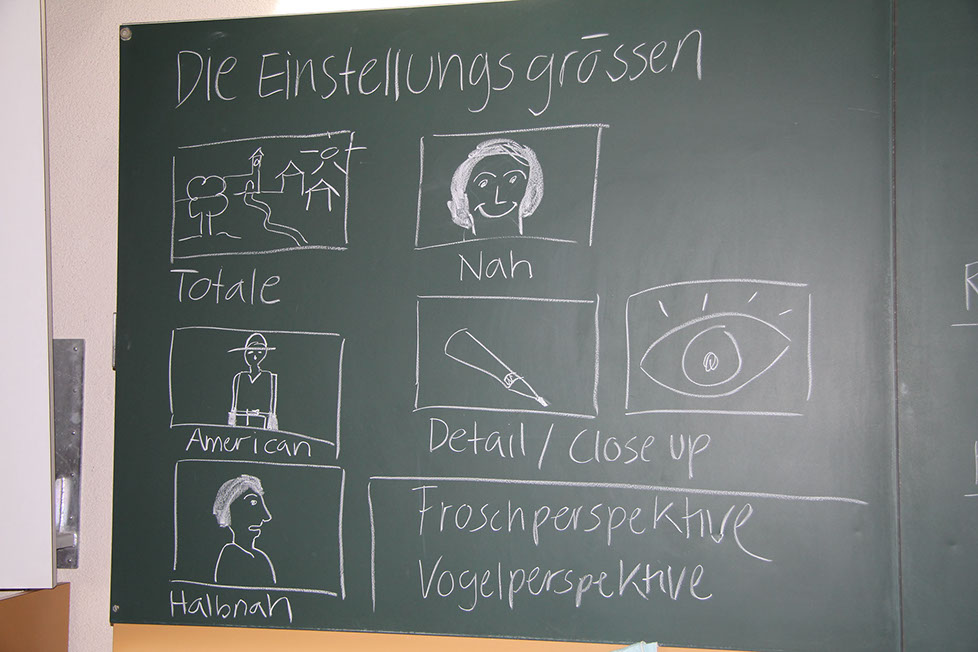 Die Einstellungsgrössen
Totale
Nah
American
Detail / Close up
Halbnah
Froschperspektive
Vogelperspektive